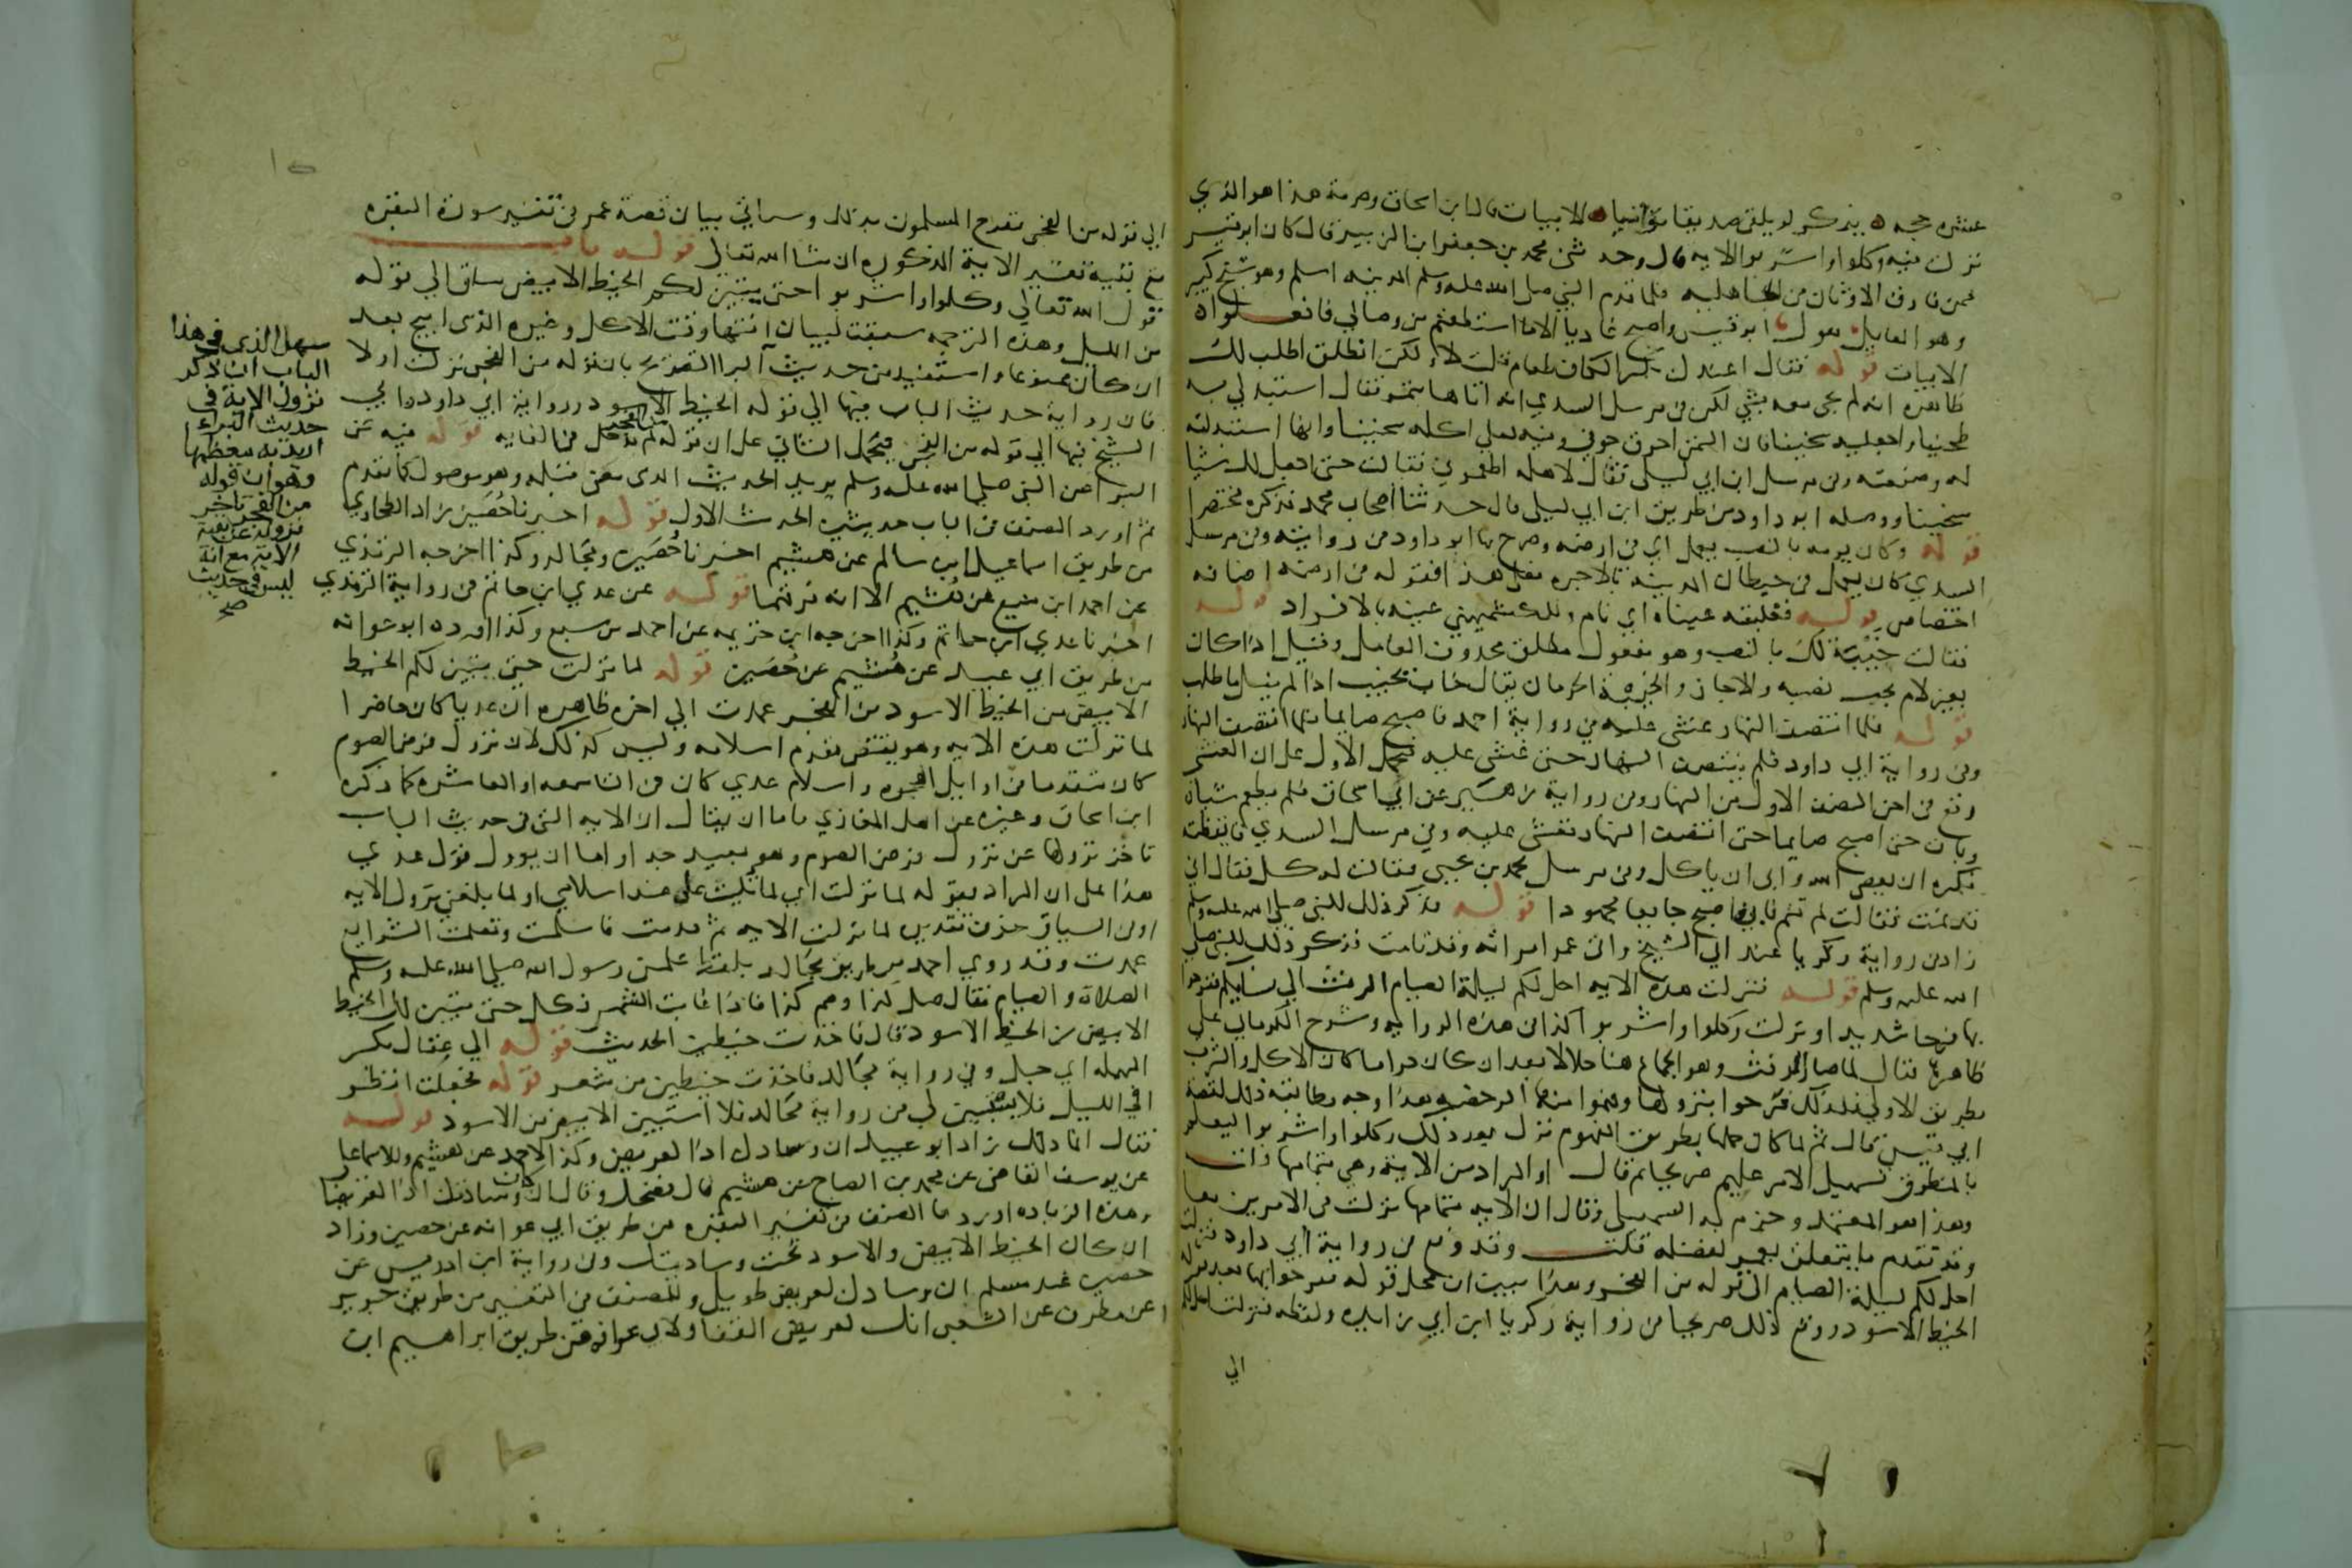 عشرة حجه يذكر لو يلقى صديقا مواتيا الابيات قال ابن اسحاق وصرمة هذا هو الذي
نزل فيه وكلوا واشربوا الايه قال وحدثني محمد بن جعفر ابن الزبير قال كان ابو قيس
ممن فارق الاوثان من الجاهليه فلما قدم النبي صلى الله عليه وسلم المدينه اسلم وهو شيخ كبير
وهو القايل يقول ابو قيس واصبح غاديا الا ما استطعتم من وصاتي فافعلوا
الابيات قوله فقال اعندك بكسر الكاف طعام قالت لا ولكن انطلق اطلب لك
ظاهره انه لم يجي معه بشي لكن في مرسل السدي انه اتاها بتمر فقال استبدلي به
طحينا واجعليه سخينا فان التمر احرق جوفي وفيه لعلي اكله سخينا وانها استبدلته
له وصنعته وفي مرسل ابن ابي ليلى فقال لاهله اطعموني فقالت حتى اجعل لك شيا
سخينا ووصله ابو داود من طريق ابن ابي ليلى قال حدثنا اصحاب محمد فذكره مختصرا
قوله وكان يومه بالنصب يعمل اي في ارضه وصرح بها ابو داود من روايته وفي مرسل
السدي كان يعمل في حيطان المدينه بالاجره فعلى هذا فقوله في ارضه اضافه
اختصاص قوله فغلبته عيناه اي نام وللكشميهني عينه بالافراد قوله
فقالت خيبة لك بالنصب وهو مفعول مطلق محذوف العامل وقيل اذا كان
بغير لام يجب نصبه والا جاز والخيبة الحرمان يقال خاب يخيب اذا لم ينل ما طلب
قوله فلما انتصف النهار غشى عليه في رواية احمد فاصبح صايما فلما انتصف النهار
وفي رواية ابي داود فلم ينتصف النهار حتى غشى عليه فيحمل الاول على ان الغشى
وقع في اخر النصف الاول من النهار وفي رواية زهير عن ابي اسحاق فلم يطعم شيا
وبات حتى اصبح صايما حتى انتصف النهار فغشى عليه وفي مرسل السدي فايقظته
فكره ان يعصى الله وابى ان ياكل وفي مرسل محمد بن يحيى فقالت له كل فقال اني
قد نمت فقالت لم تنم فابى فاصبح جايعا مجهودا قوله فذكر ذلك للنبي صلى الله عليه وسلم
زاد في رواية زكريا عند ابي الشيخ واتى عمر امراته وقد نامت فذكر ذلك للنبي صلى
الله عليه وسلم قوله فنزلت هذه الايه احل لكم ليلة الصيام الرفث الى نسايكم ففرحوا
بها فرحا شديدا ونزلت وكلوا واشربوا كذا في هذه الروايه وشرح الكرماني على
ظاهرها فقال لما صار الرفث وهو الجماع هنا حلالا بعد ان كان حراما كان الاكل والشرب
بطريق الاولى فلذلك فرحوا بنزولها وفهموا منها الرخصه هذا وجه مطابقة ذلك لقصة
ابي قيس قال ثم لما كان حلها بطريق المفهوم نزل بعد ذلك وكلوا واشربوا ليعلم
بالمنطوق تسهيل الامر عليهم صريحا ثم قال او المراد من الاية هي بتمامها قلت
وهذا هو المعتمد وجزم به السهيلي وقال ان الايه بتمامها نزلت في الامرين معا
وقدم ما يتعلق بعمر لفضله قلت وقد وقع في رواية ابي داود فنزلت
احل لكم ليلة الصيام الى قوله من الفجر وهذا يبين ان محل قوله ففرحوا بها بعد قوله
الخيط الاسود ووقع ذلك صريحا في رواية زكريا ابن ابي زايده ولفظه فنزلت احل لكم
الي
الي قوله من الفجر ففرح المسلمون بذلك وسياتي بيان قصة عمر في تفسير سورة البقره
مع بقية تفسير الاية المذكوره ان شا الله تعالى قوله باب
قول الله تعالى وكلوا واشربوا حتى يتبين لكم الخيط الابيض ساق الى قوله
من الليل وهذه الترجمه سيقت لبيان انتها وقت الاكل وغيره الذى ابيح بعد
ان كان ممنوعا واستفيد من حديث البرا التصريح بان قوله من الفجر نزلت اولا
فان رواية حديث الباب فيها الى قوله الخيط الاسود وروايه ابي داود وابي
الشيخ فيها الى قوله من الفجر فيحمل الثاني على ان قوله من الفجر لم يدخل في الغايه قوله فيه عن
البرا عن النبي صلى الله عليه وسلم يريد الحديث الذى مضى قبله وهو موصول كما تقدم
ثم اورد المصنف في الباب حديثين الحديث الاول قوله اخبرنا حُصَين زاد الطحاوي
من طريق اسماعيل ابن سالم عن هشيم اخبرنا حُصَين ومجالد وكذا اخرجه الترمذي
عن احمد ابن منيع عن هُشيم الا انه فرقهما قوله عن عدي ابن حاتم في رواية الترمذي
اخبرنا عدي ابن حاتم وكذا اخرجه ابن خزيمه عن احمد بن منيع وكذا اورده ابو عوانه
من طريق ابي عبيد عن هُشيم عن حُصَين قوله لما نزلت حتى يتبين لكم الخيط
الابيض من الخيط الاسود من الفجر عمدت الى اخره ظاهره ان عديا كان حاضرا
لما نزلت هذه الايه وهو يقتضى تقدم اسلامه وليس كذلك لان نزول فرض الصوم
كان متقدما في اوايل الهجره واسلام عدي كان في التاسعه او العاشره كما ذكره
ابن اسحاق وغيره من اهل المغازي فاما ان يقال ان الايه التي في حديث الباب
تاخر نزولها عن نزول فرض الصوم وهو بعيد جدا واما ان يوول قول عدي
هذا على ان المراد بقوله لما نزلت اي لما تُليت على عند اسلامي او لما بلغني نزول الايه
او في السياق حذف تقديره لما نزلت الايه ثم قدمت فاسلمت وتعلمت الشرايع
عمدت وقد روى احمد من طريق مجالد بلفظ علمني رسول الله صلى الله عليه وسلم
الصلاة والصيام فقال صل كذا وصم كذا فاذا غابت الشمس فكل حتى يتبين لك الخيط
الابيض من الخيط الاسود قال فاخذت خيطين الحديث قوله الي عقال بكسر
المهمله اي حبل وفي رواية مجالد فاخذت خيطين من شعر قوله فجعلت انظر
في الليل فلا يستبين لي في رواية مجالد فلا استبين الابيض من الاسود قوله
فقال انما ذلك زاد ابو عبيد ان وسادك اذا لعريض وكذا لاحمد عن هشيم وللاسماعيلي
عن يوسف القاضي عن محمد بن الصباح عن هشيم قال فضحك وقال ان كان وسادتك اذا لعريضا
وهذه الزياده اوردها المصنف في تفسير البقره من طريق ابي عوانه عن حصين وزاد
ان كان الخيط الابيض والاسود تحت وسادتك وفي رواية ابن ادريس عن
حصين عند مسلم ان وسادك لعريض طويل وللمصنف في التفسير من طريق جرير
عن مطرف عن الشعبي انك لعريض القفا ولابي عوانه من طريق ابراهيم ابن
سهل الذي في هذا
الباب ان ذكر
نزول الاية في
حديث البراء
اريد به معظمها
وهو ان قوله
من الفجر تاخر
نزوله عن بقية
الاية مع انه
ليس في حديث
صح